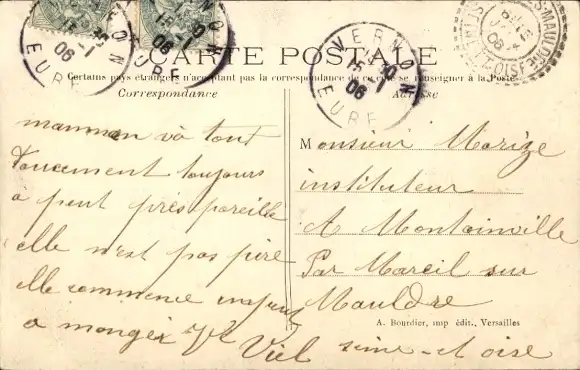 CARTE POSTALE
Certains pays étrangers n'acceptent pas la correspondance de ce côté se renseigner à la Poste
Correspondance
Adresse
VERNON
EURE
VERNON
EURE
15 1
06
VERNON
EURE
maman va tout
doucement toujours
à peut près pareille
elle n'est pas pire
elle commence un peu
a manger
Viel
Monsieur Morize
instituteur
A Montainville
Par Mareil sur
Mauldre
seine et oise
A. Bourdier, imp édit., Versailles